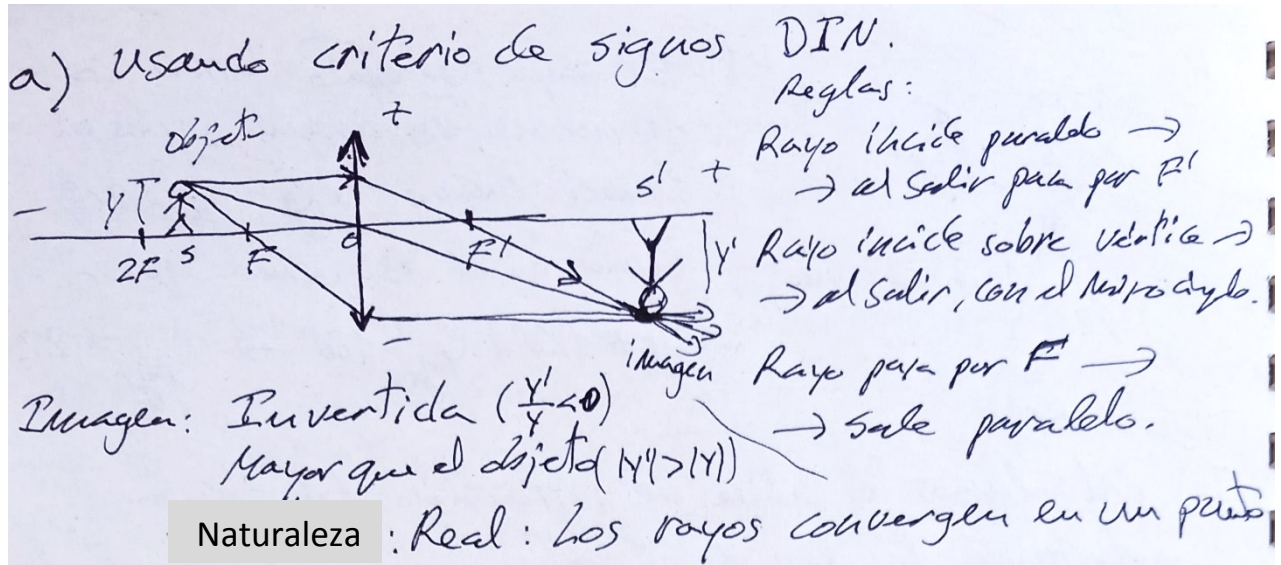 a) Usando criterio de signos DIN.
Reglas:
Rayo incide paralelo →
→ al salir pasa por F'
Rayo incide sobre vértice →
→ al salir, con el mismo ángulo.
Rayo pasa por F →
→ sale paralelo.
Objeto
+
-
Y
2F
S
F
O
F'
S'
+
Y'
-
imagen
Imagen: Invertida (Y'/Y <0)
Mayor que el objeto (|Y'|>|Y|)
Naturaleza : Real : Los rayos convergen en un punto